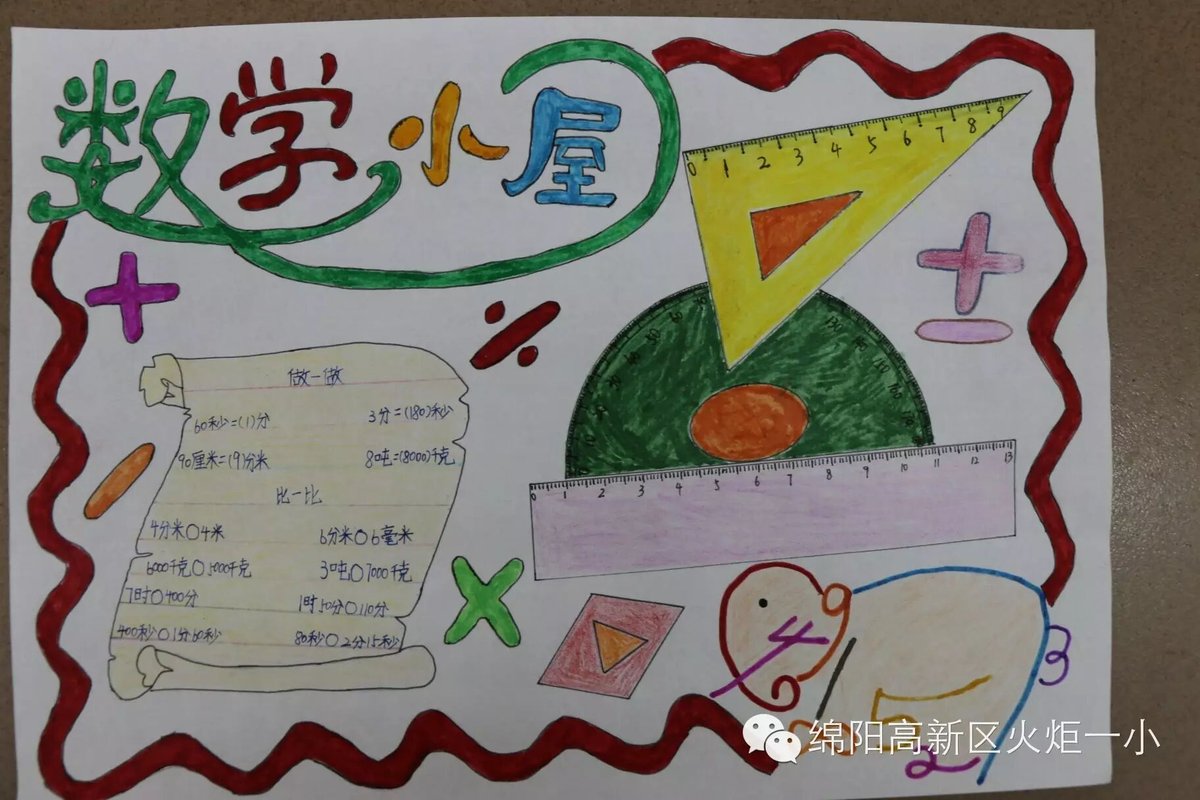 数学小屋
0 1 2 3 4 5 6 7 8 9
做一做
60秒=(1)分 3分=(180)秒
90厘米=(9)分米 8吨=(8000)千克
比一比
4分米○4米 6分米○6毫米
6000千克○5000千克 3吨○7000千克
7时○400分 1时50分○110分
400秒○1分60秒 80秒○2分15秒
0 1 2 3 4 5 6 7 8 9 10 11 12 13
绵阳高新区火炬一小